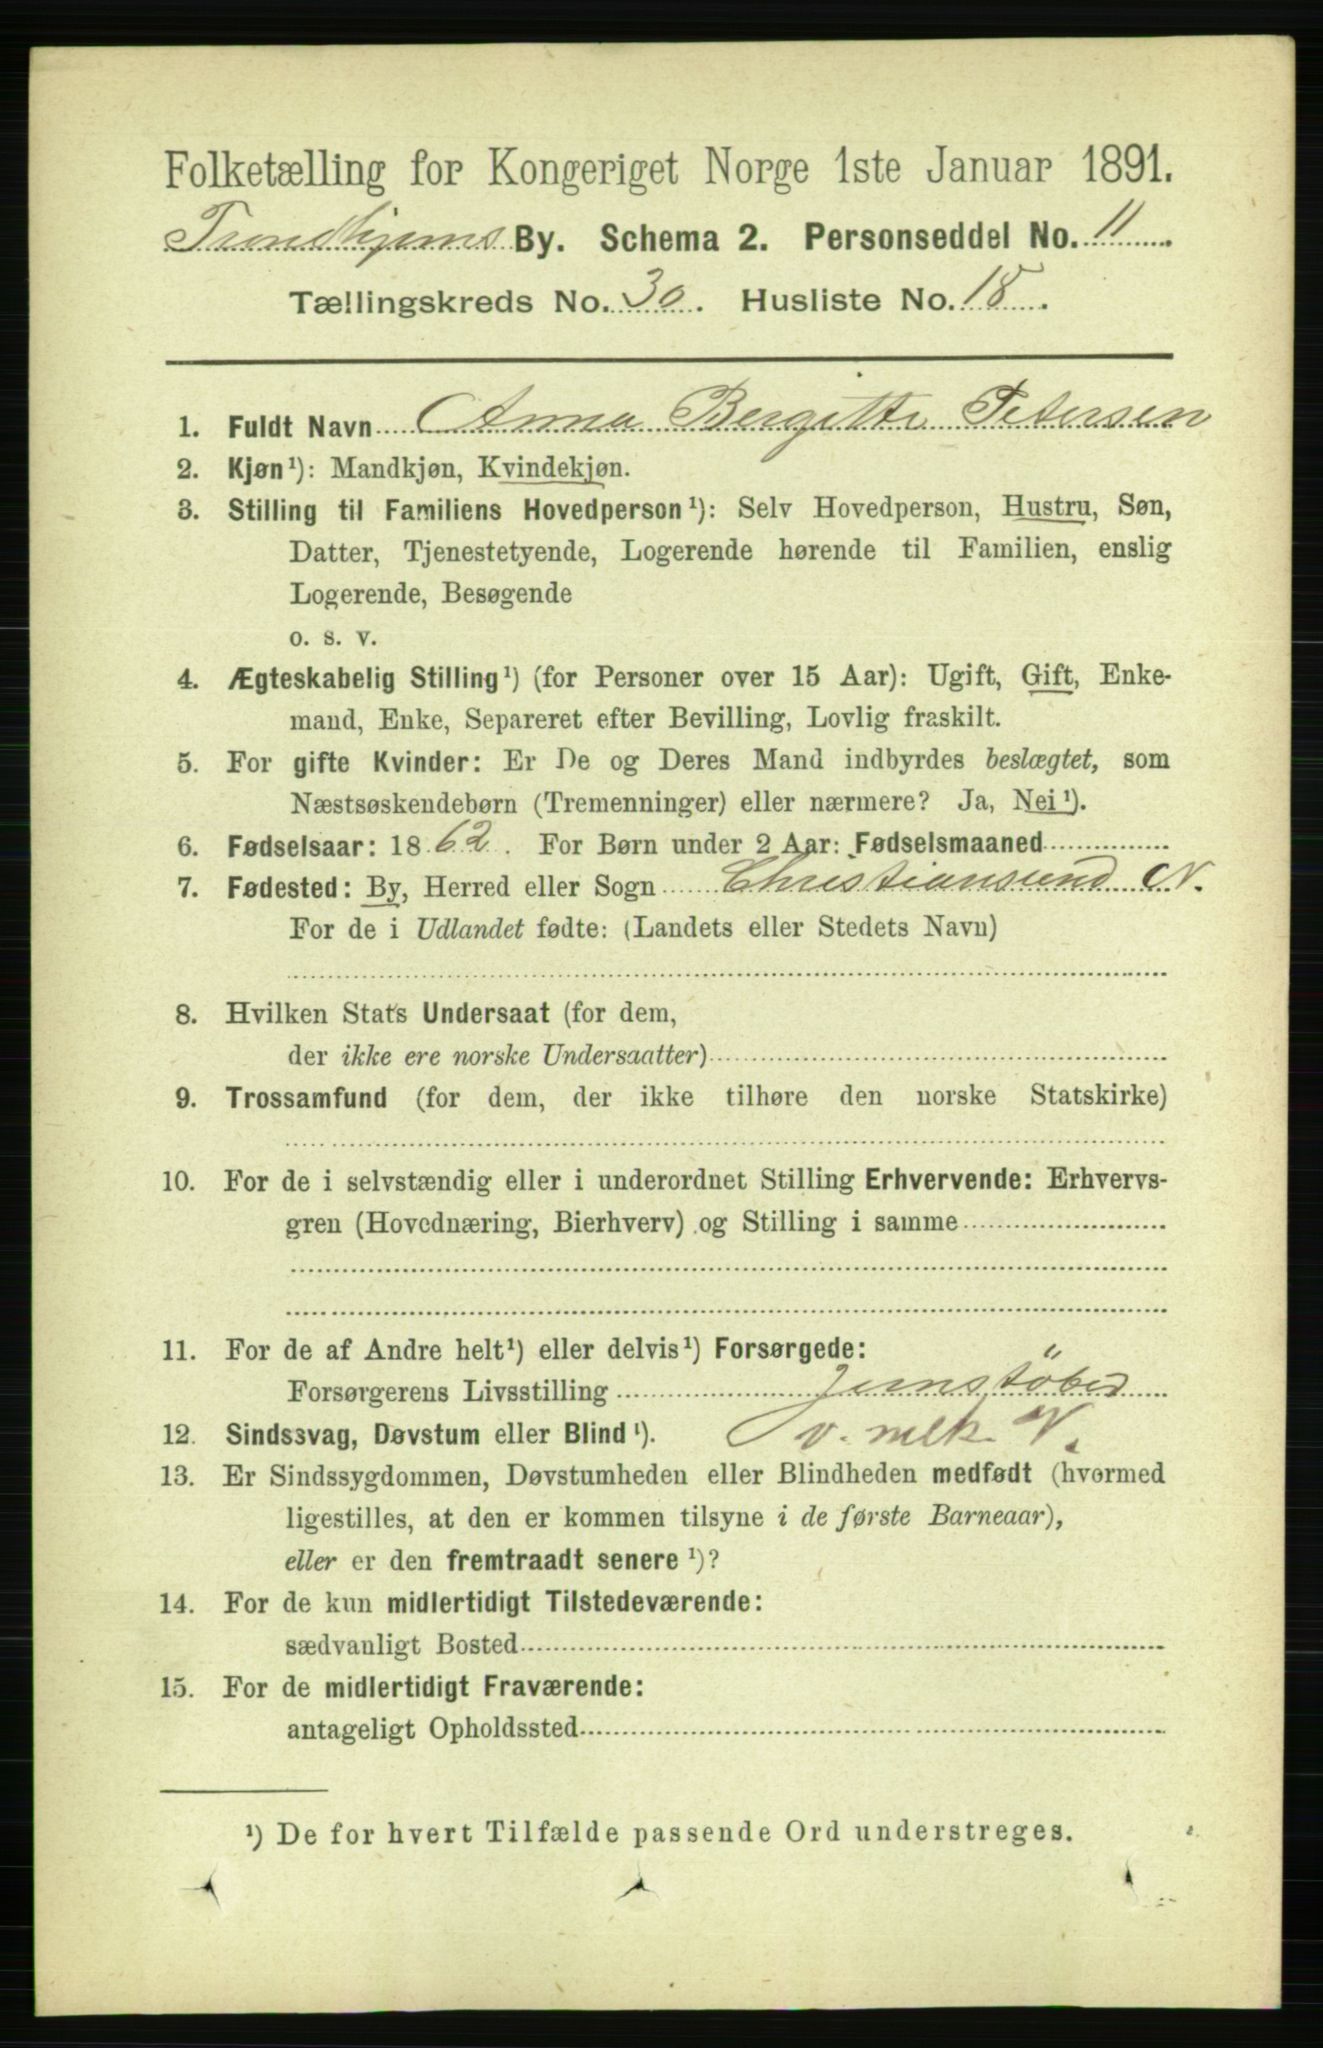 Folketælling for Kongeriget Norge 1ste Januar 1891.
Trondhjems By. Schema 2. Personseddel No. 11
Tællingskreds No. 30. Husliste No. 18.
1. Fuldt Navn Anna Bergitte Petersen
2. Kjøn¹): Mandkjøn, Kvindekjøn.
3. Stilling til Familiens Hovedperson¹): Selv Hovedperson, Hustru, Søn,
Datter, Tjenestetyende, Logerende hørende til Familien, enslig
Logerende, Besøgende
o. s. v.
4. Ægteskabelig Stilling¹) (for Personer over 15 Aar): Ugift, Gift, Enke-
mand, Enke, Separeret efter Bevilling, Lovlig fraskilt.
5. For gifte Kvinder: Er De og Deres Mand indbyrdes beslægtet, som
Næstsøskendebørn (Tremenninger) eller nærmere? Ja, Nei¹).
6. Fødselsaar: 1862. For Børn under 2 Aar: Fødselsmaaned
7. Fødested: By, Herred eller Sogn Christiansund N.
For de i Udlandet fødte: (Landets eller Stedets Navn)
8. Hvilken Stats Undersaat (for dem,
der ikke ere norske Undersaatter)
9. Trossamfund (for dem, der ikke tilhøre den norske Statskirke)
10. For de i selvstændig eller i underordnet Stilling Erhvervende: Erhvervs-
gren (Hovednæring, Bierhverv) og Stilling i samme
11. For de af Andre helt¹) eller delvis¹) Forsørgede:
Forsørgerens Livsstilling Jernstöber
12. Sindssvag, Døvstum eller Blind¹). v. mek. V.
13. Er Sindssygdommen, Døvstumheden eller Blindheden medfødt (hvormed
ligestilles, at den er kommen tilsyne i de første Barneaar),
eller er den fremtraadt senere¹)?
14. For de kun midlertidigt Tilstedeværende:
sædvanligt Bosted
15. For de midlertidigt Fraværende:
antageligt Opholdssted
¹) De for hvert Tilfælde passende Ord understreges.